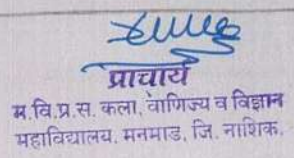 प्राचार्य
म.वि.प्र.स. कला, वाणिज्य व विज्ञान
महाविद्यालय, मनमाड, जि. नाशिक.